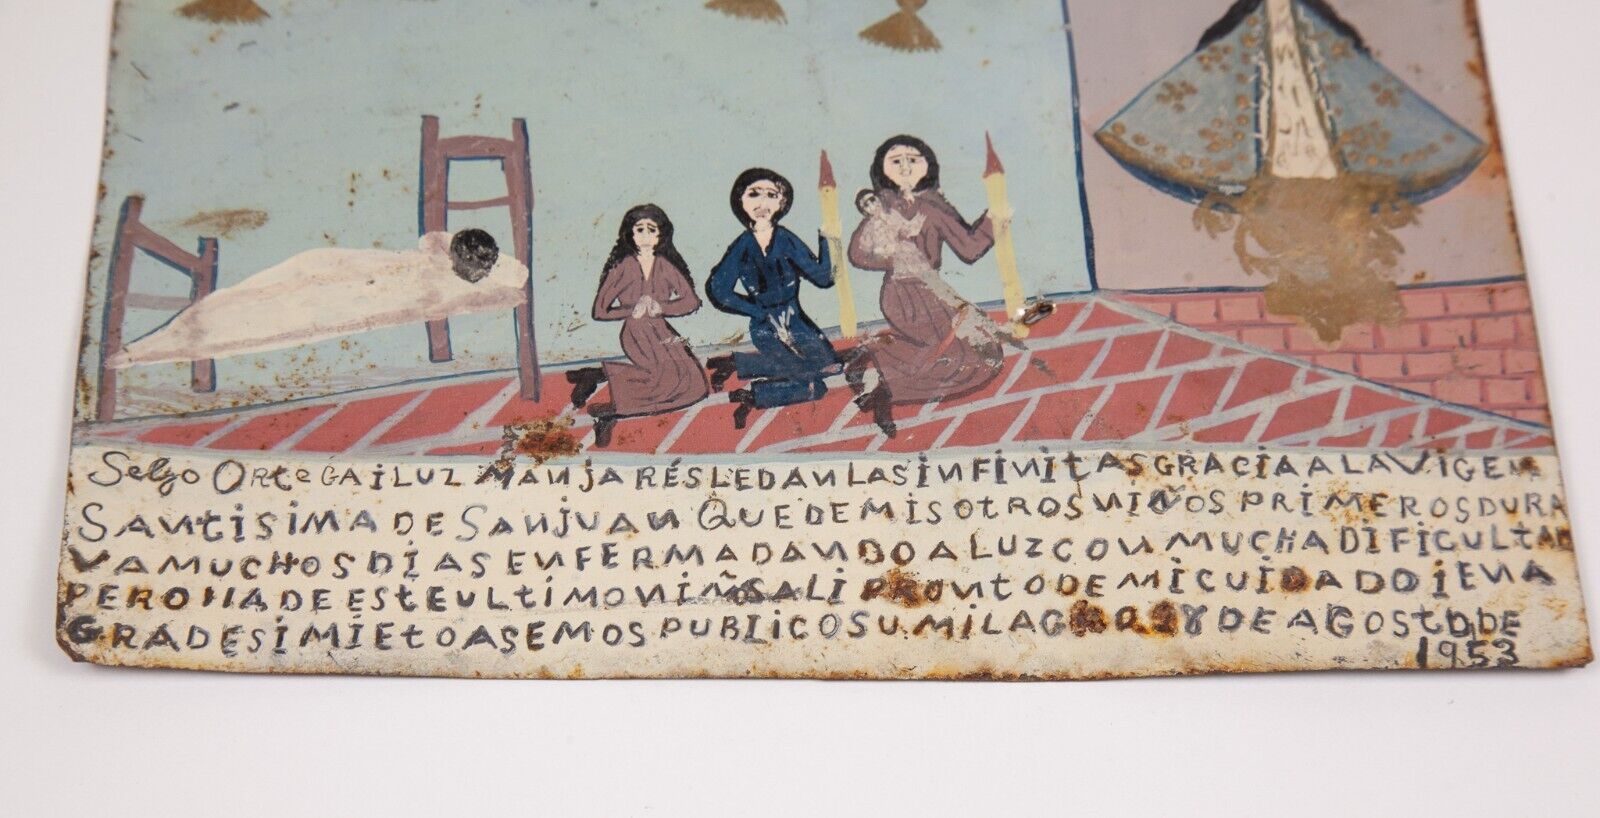 Selzo OrteGA i LUZ MANJARÉS LE DAN LAS iNFiNitAS GRACiA A LA ViGEN
SANtiSiMA DE SANJUAN QUE DE MiS OtROS NiÑOS PRiMEROS DURA
VA MUCHOS DÍAS ENFERMA DANDO A LUZ CON MUCHA DiFiCULtAD
PERO YIA DE EStE ULtiMO NiÑO SALi PRONtO DE MI CUiDADO i EN A
GRADESiMiEtO ASEMOS PUBLiCO SU MiLAGRO 28 DE AGOStO DE
1953